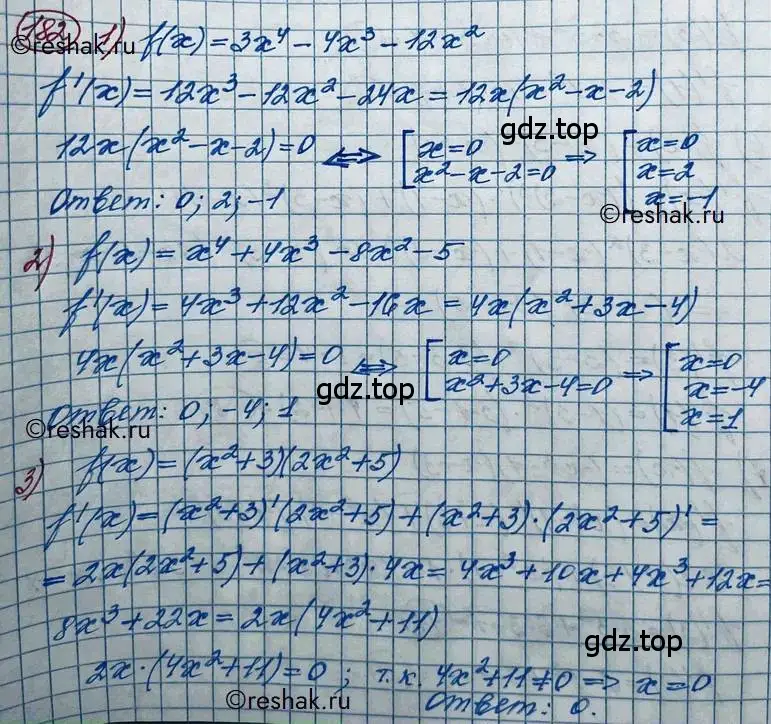 182 1) f(x) = 3x⁴ - 4x³ - 12x²
f'(x) = 12x³ - 12x² - 24x = 12x(x² - x - 2)
gdz.top
12x(x² - x - 2) = 0 ⟺ [ x = 0 ⟹ [ x = 0
x² - x - 2 = 0 x = 2
Ответ: 0; 2; -1 x = -1
©reshak.ru ©reshak.ru
2) f(x) = x⁴ + 4x³ - 8x² - 5
f'(x) = 4x³ + 12x² - 16x = 4x(x² + 3x - 4)
4x(x² + 3x - 4) = 0 ⟺ [ x = 0 ⟹ [ x = 0
gdz.top x² + 3x - 4 = 0 x = -4
Ответ: 0; -4; 1 x = 1
©reshak.ru
3) f(x) = (x² + 3)(2x² + 5)
f'(x) = (x² + 3)'(2x² + 5) + (x² + 3)·(2x² + 5)' =
= 2x(2x² + 5) + (x² + 3)·4x = 4x³ + 10x + 4x³ + 12x =
8x³ + 22x = 2x(4x² + 11)
gdz.top
2x·(4x² + 11) = 0 ; т.к. 4x² + 11 ≠ 0 ⟹ x = 0
©reshak.ru Ответ: 0.